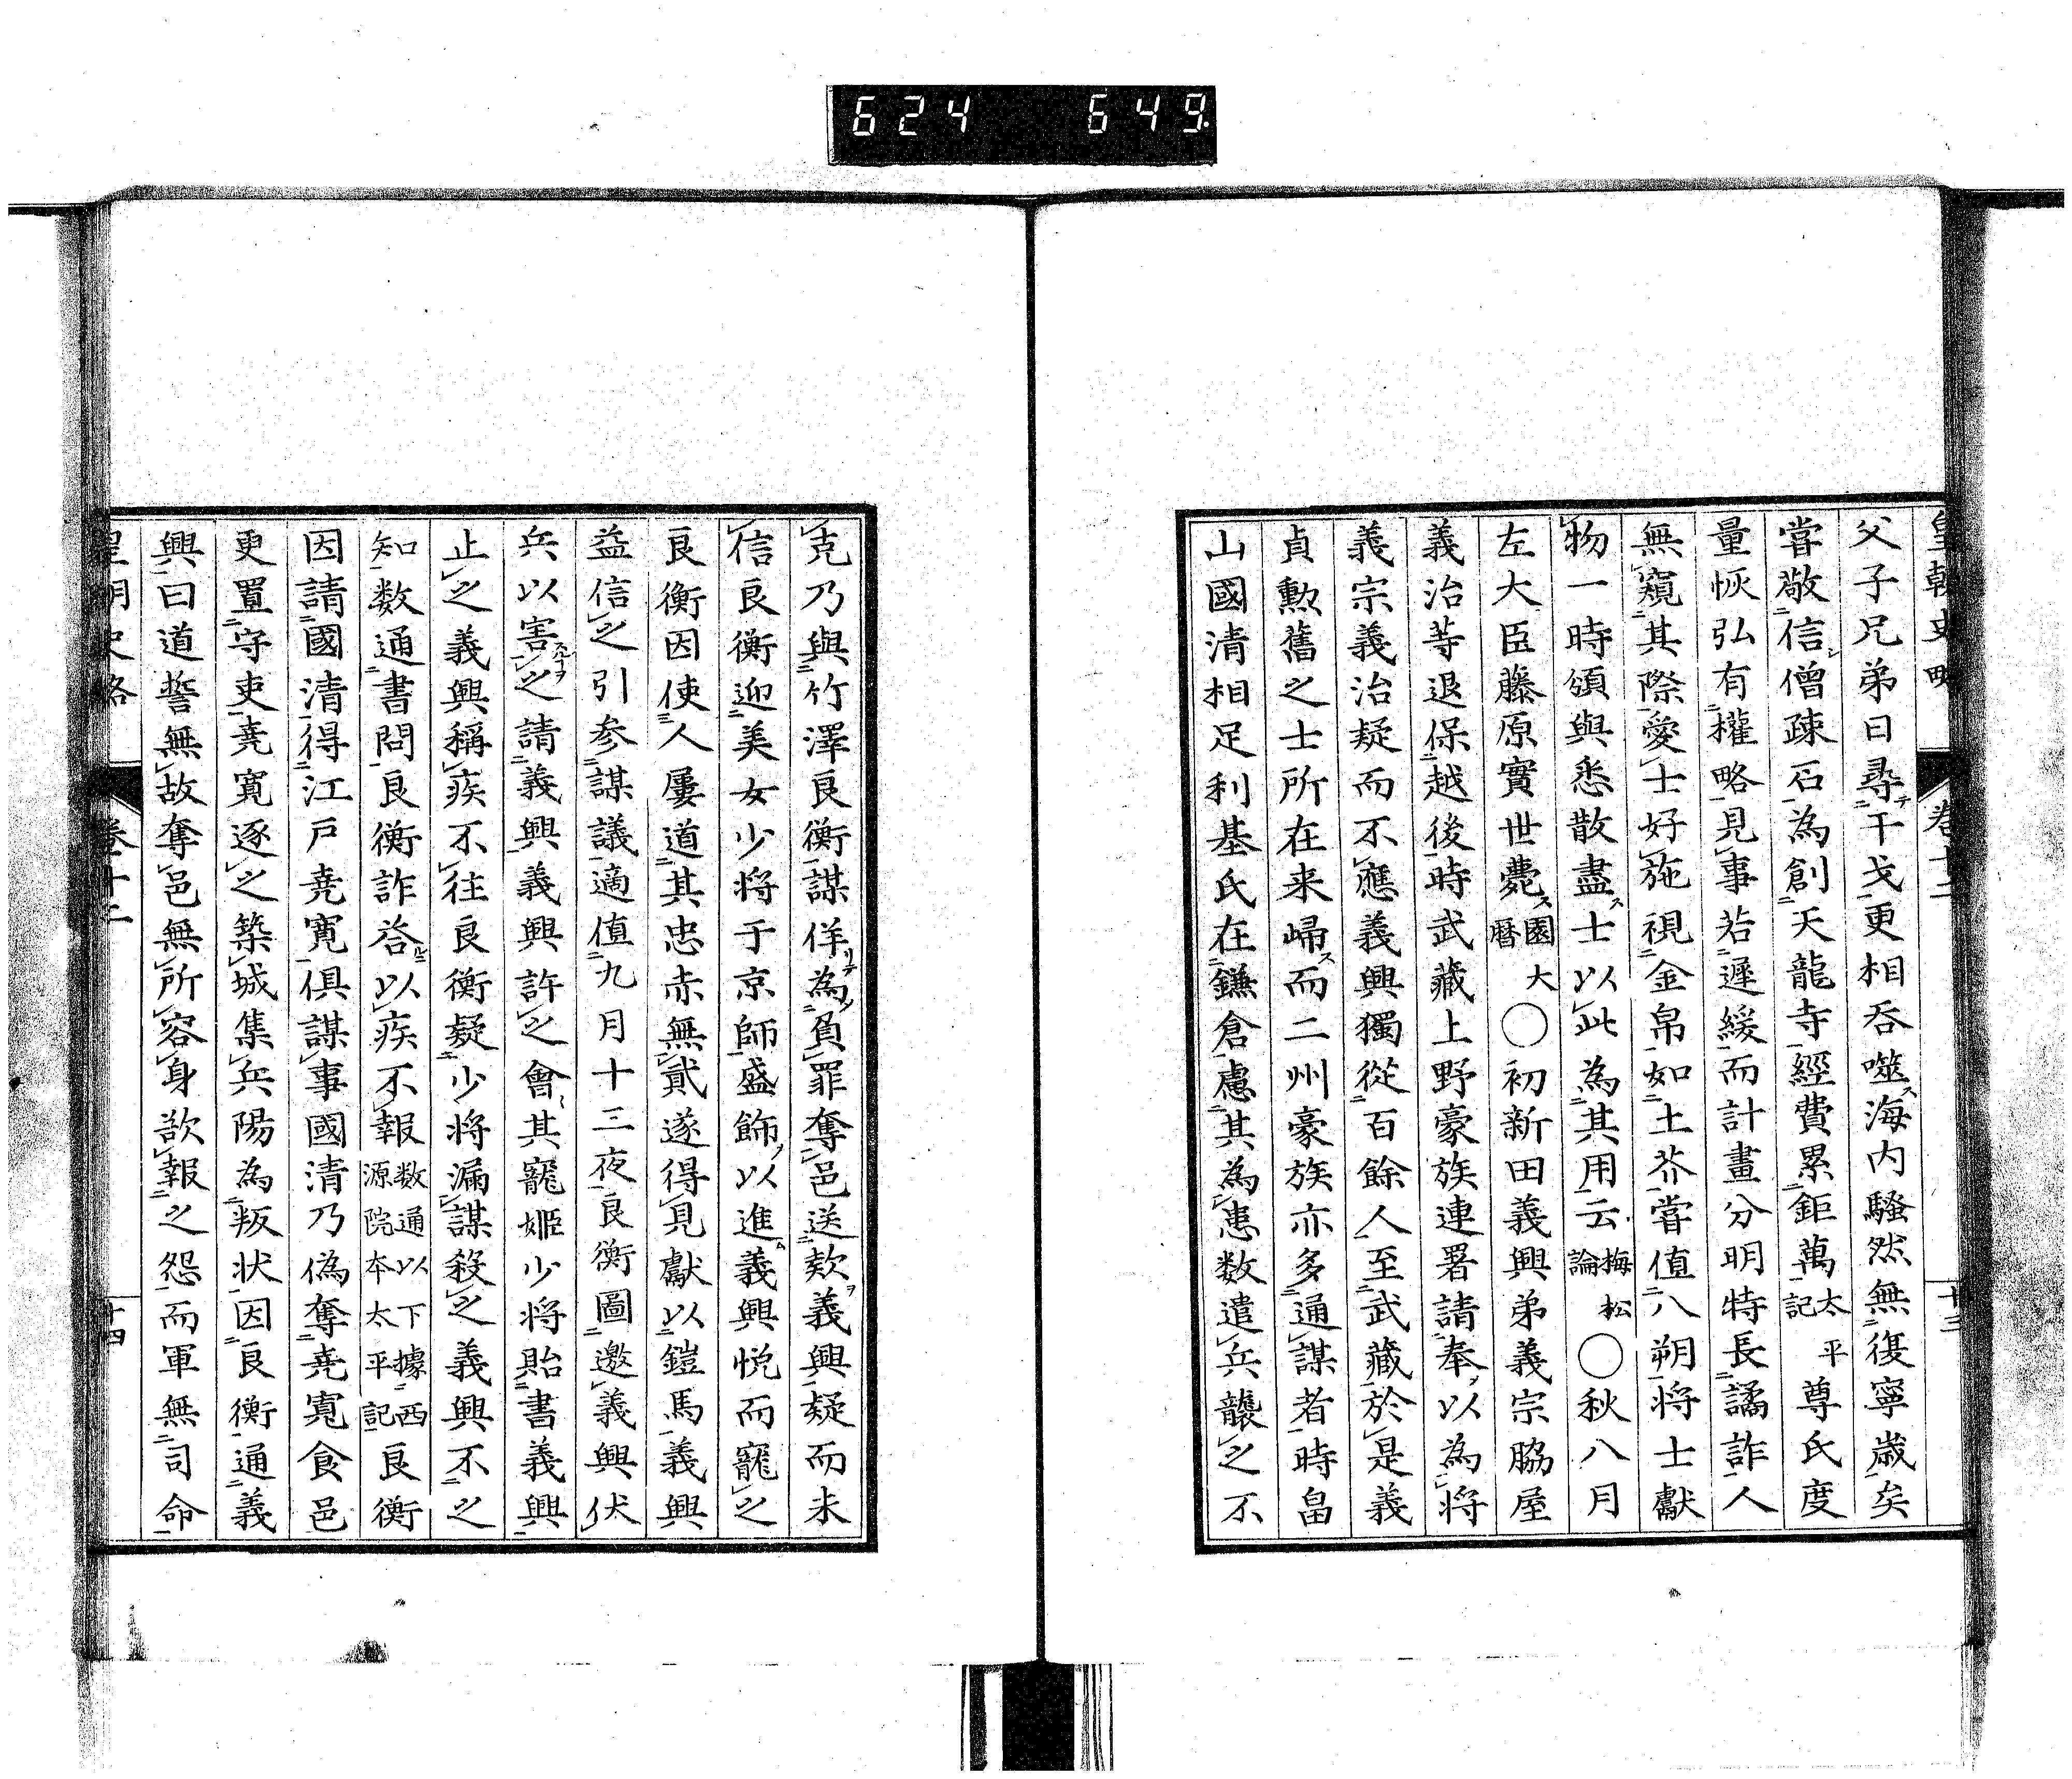 624 649.
皇朝史略 卷十二 十三
父子兄弟日尋干戈更相吞噬海内騷然無復寧歲矣
嘗敬信僧疎石為創天龍寺經費累鉅萬太平記尊氏度
量恢弘有權略見事若遲緩而計畫分明特長譎詐人
無窺其際愛士好施視金帛如土芥嘗值八朔將士獻
物一時頒與悉散盡士以此為其用云梅松論〇秋八月
左大臣藤原實世薨園大暦〇初新田義興弟義宗脇屋
義治等退保越後時武藏上野豪族連署請奉以為將
義宗義治疑而不應義興獨從百餘人至武藏於是義
貞勲舊之士所在来歸而二州豪族亦多通謀者時畠
山國清相足利基氏在鎌倉慮其為患数遣兵襲之不
克乃與竹澤良衡謀佯為負罪奪邑送欵義興疑而未
信良衡迎美女少将于京師盛飾以進義興悦而寵之
良衡因使人屢道其忠赤無貳遂得見獻以鎧馬義興
益信之引参謀議適值九月十三夜良衡圖邀義興伏
兵以害之請義興義興許之會其寵姬少将貽書義興
止之義興稱疾不往良衡疑少将漏謀殺之義興不之
知数通書問良衡詐答以疾不報数通以下據西源院本太平記良衡
因請國清得江戸堯寛俱謀事國清乃偽奪堯寛食邑
更置守吏堯寛逐之築城集兵陽為叛状因良衡通義
興曰道誓無故奪邑無所容身欲報之怨而軍無司命
皇朝史略 卷十二 十四